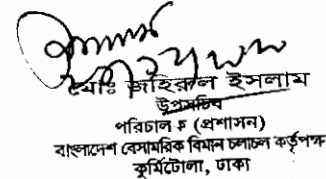 মোঃ জহিরুল ইসলাম
উপসচিব
পরিচালক (প্রশাসন)
বাংলাদেশ বেসামরিক বিমান চলাচল কর্তৃপক্ষ
কুর্মিটোলা, ঢাকা